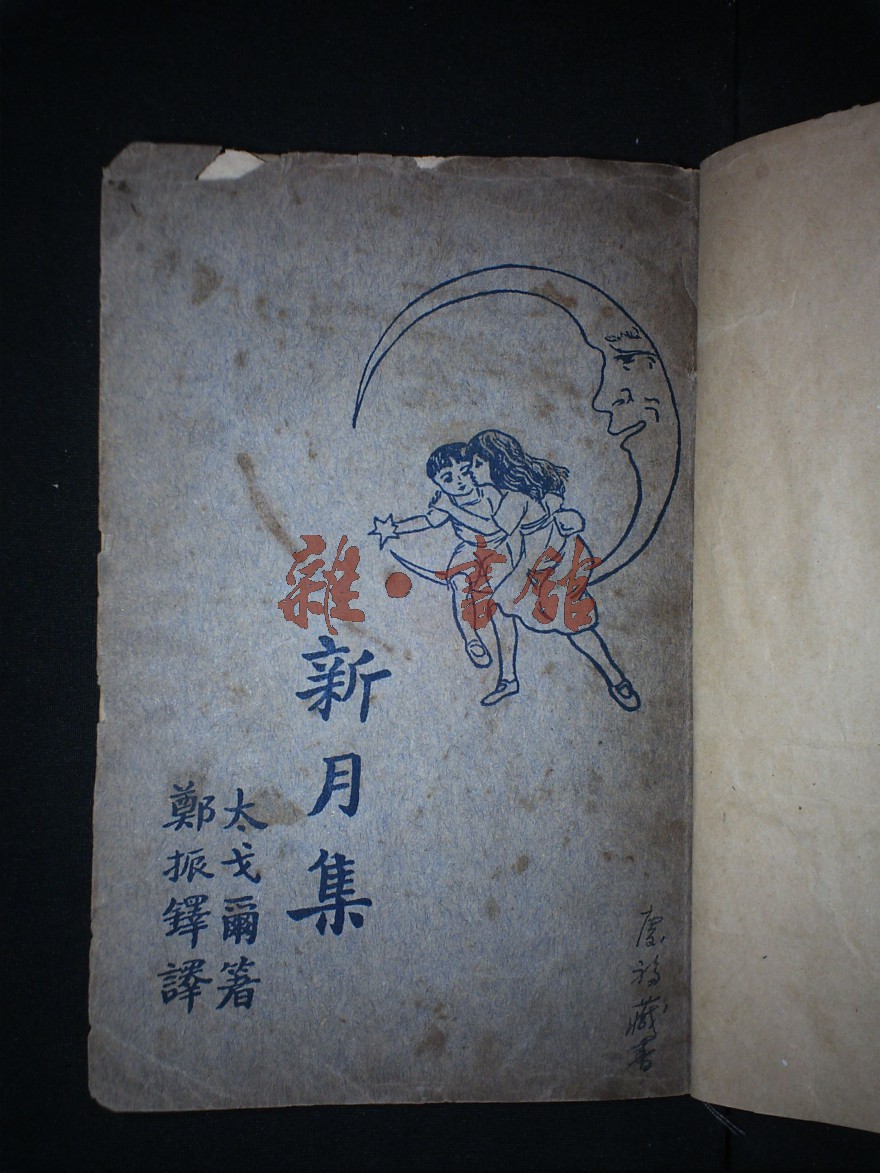 雜·書館
新月集
太戈爾箸
鄭振鐸譯
藏書